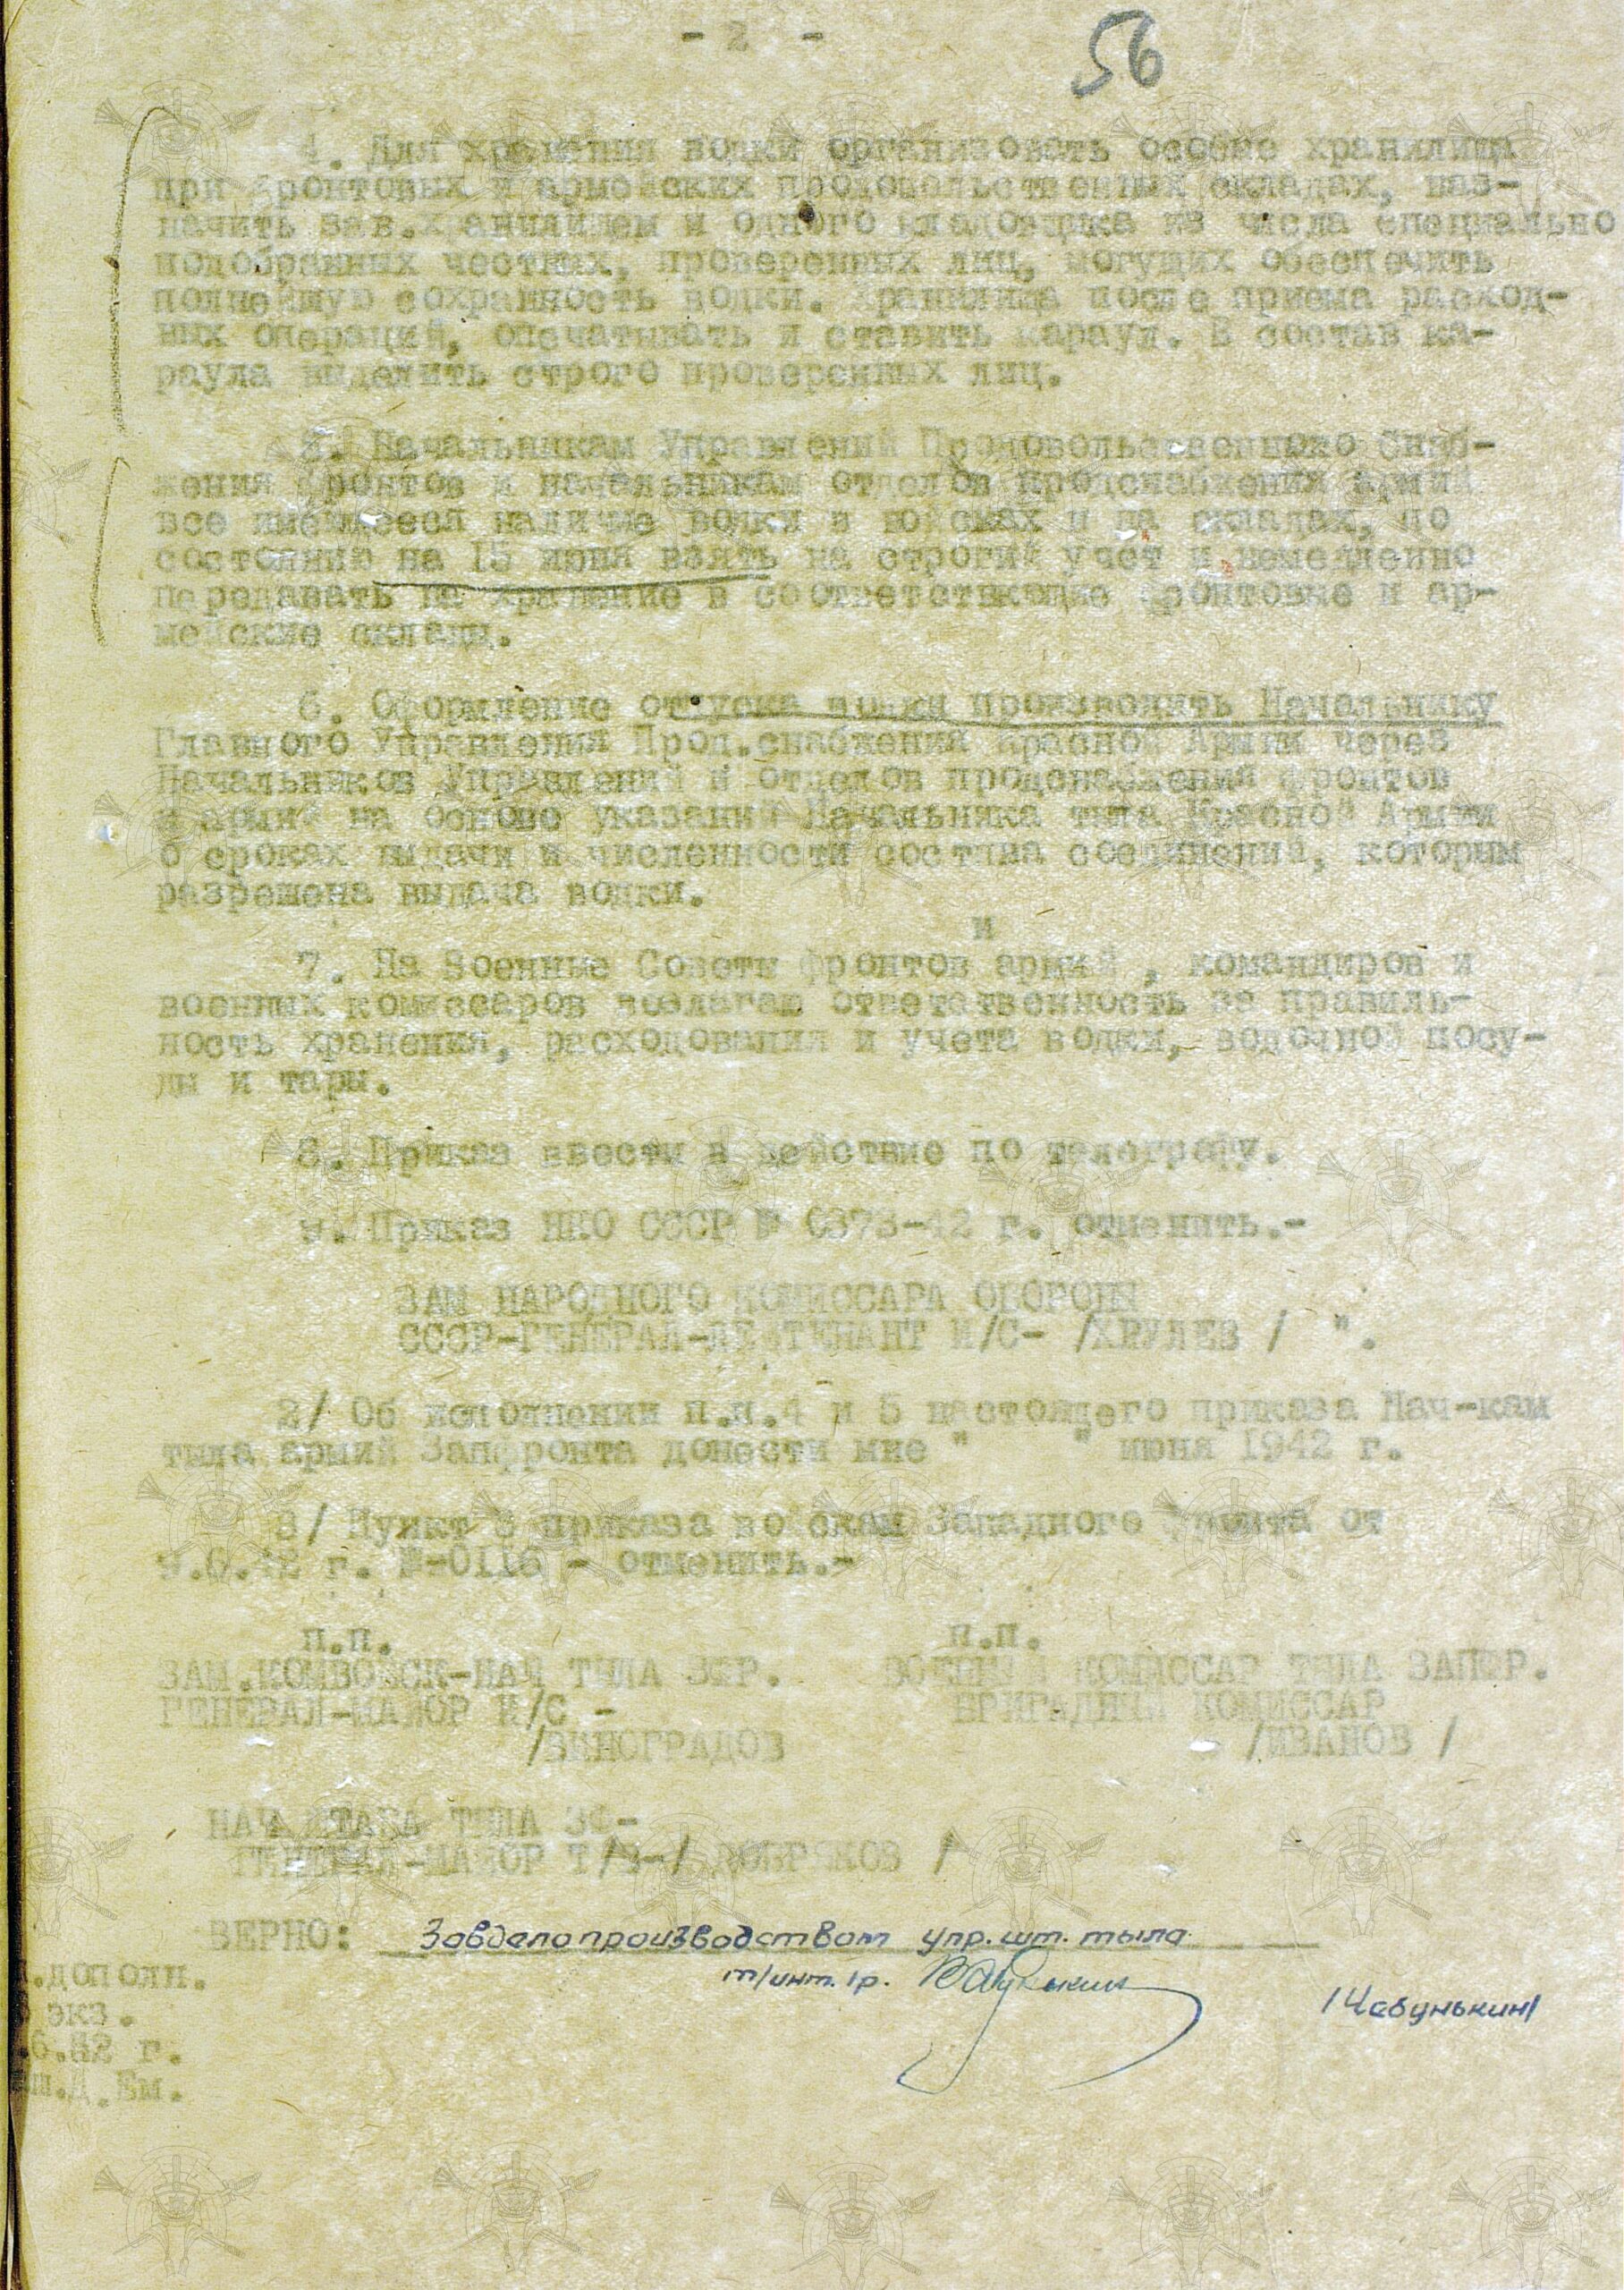 - 2 -
56
4. Для хранения водки организовать особые хранилища
при фронтовых и армейских продовольственных складах, наз-
начить зав.хранилищем и одного кладовщика из числа специально
подобранных честных, проверенных лиц, могущих обеспечить
полнейшую сохранность водки. Хранилища после приема расход-
ных операций, опечатывать и ставить караул. В состав ка-
раула выделить строго проверенных лиц.
5. Начальникам Управлений Продовольственного Снаб-
жения фронтов и начальникам отделов продснабжения армий
все имеющееся наличие водки в войсках и на складах, по
состоянию на 15 июня взять на строгий учет и немедленно
передавать на хранение в соответствующие фронтовые и ар-
мейские склады.
6. Оформление отпуска водки производить Начальнику
Главного Управления Прод.снабжения Красной Армии через
Начальников Управлений и отделов продснабжений фронтов
и армий на основе указаний Начальника тыла Красной Армии
о сроках выдачи и численности состава соединений, которым
разрешена выдача водки.
и
7. На Военные Советы фронтов армий , командиров и
военных комиссаров возлагаю ответственность за правиль-
ность хранения, расходования и учета водки, водочной посу-
ды и тары.
8. Приказ ввести в действие по телеграфу.
9. Приказ НКО СССР № 0373-42 г. отменить.-
ЗАМ НАРОДНОГО КОМИССАРА ОБОРОНЫ
СССР-ГЕНЕРАЛ-ЛЕЙТЕНАНТ И/С- /ХРУЛЕВ / ".
2/ Об исполнении п.п.4 и 5 настоящего приказа Нач-кам
тыла армий Запфронта донести мне " " июня 1942 г.
3/ Пункт 3 приказа войскам Западного Фронта от
9.6.42 г. №-0116 - отменить.-
п.п. п.п.
ЗАМ.КОМВОЙСК-НАЧ ТЫЛА ЗФР. ВОЕННЫЙ КОМИССАР ТЫЛА ЗАПФР.
ГЕНЕРАЛ-МАЙОР И/С - БРИГАДНЫЙ КОМИССАР
/ВИНОГРАДОВ /ИВАНОВ /
НАЧ ШТАБА ТЫЛА ЗФ-
ГЕНЕРАЛ-МАЙОР Т/В-/ ДОБРЯКОВ /
ВЕРНО: Завделопроизводством упр.шт.тыла
т/инт. 1р.
/Чабунькин/
.дополн.
экз.
.6.42 г.
.Д.Ем.